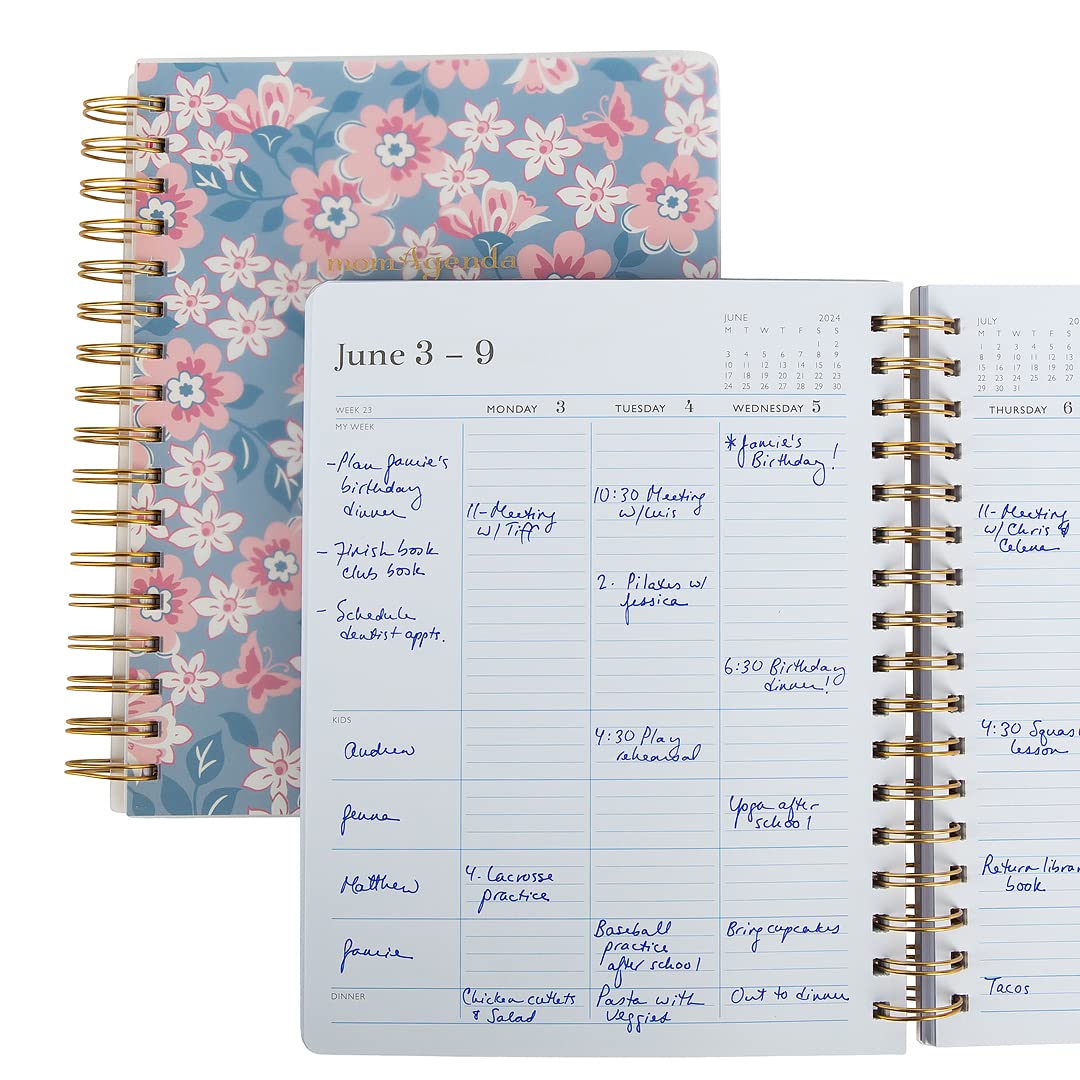 momAgenda
June 3 – 9
JUNE 2024
M T W T F S S
1 2
3 4 5 6 7 8 9
10 11 12 13 14 15 16
17 18 19 20 21 22 23
24 25 26 27 28 29 30
WEEK 23
MONDAY 3
TUESDAY 4
WEDNESDAY 5
MY WEEK
-Plan Jamie's
birthday
dinner
- Finish book
club book
- Schedule
dentist appts.
11-Meeting
w/ Tiff
10:30 Meeting
w/Luis
2. Pilates w/
Jessica
*Jamie's
Birthday!
6:30 Birthday
dinner!
KIDS
Andrew
4:30 Play
rehearsal
Jenna
Yoga after
school
Matthew
4. Lacrosse
practice
Jamie
Baseball
practice
after school
Bring cupcakes
DINNER
Chicken cutlets
& Salad
Pasta with
veggies
Out to dinner
JULY 20
M T W T F S
1 2 3 4 5 6
8 9 10 11 12 13
15 16 17 18 19 20
22 23 24 25 26 27
29 30 31
THURSDAY 6
11-Meeting
w/ Chris &
Celena
4:30 Squas
lesson
Return libra
book
Tacos